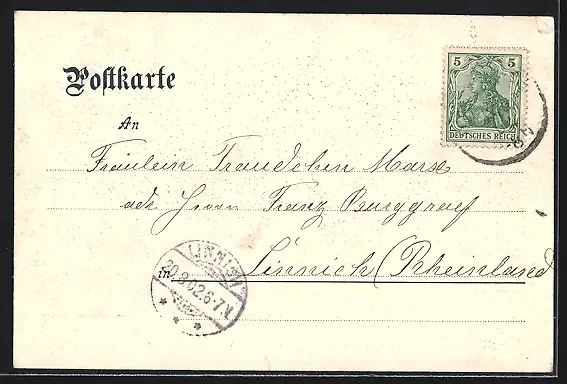 Postkarte
5 5
DEUTSCHES REICH
An
Fräulein Traudchen Marse
adr Herrn Franz Burggraef
in Linnich (Rheinland
LINNICH
20.8.02.6-7N